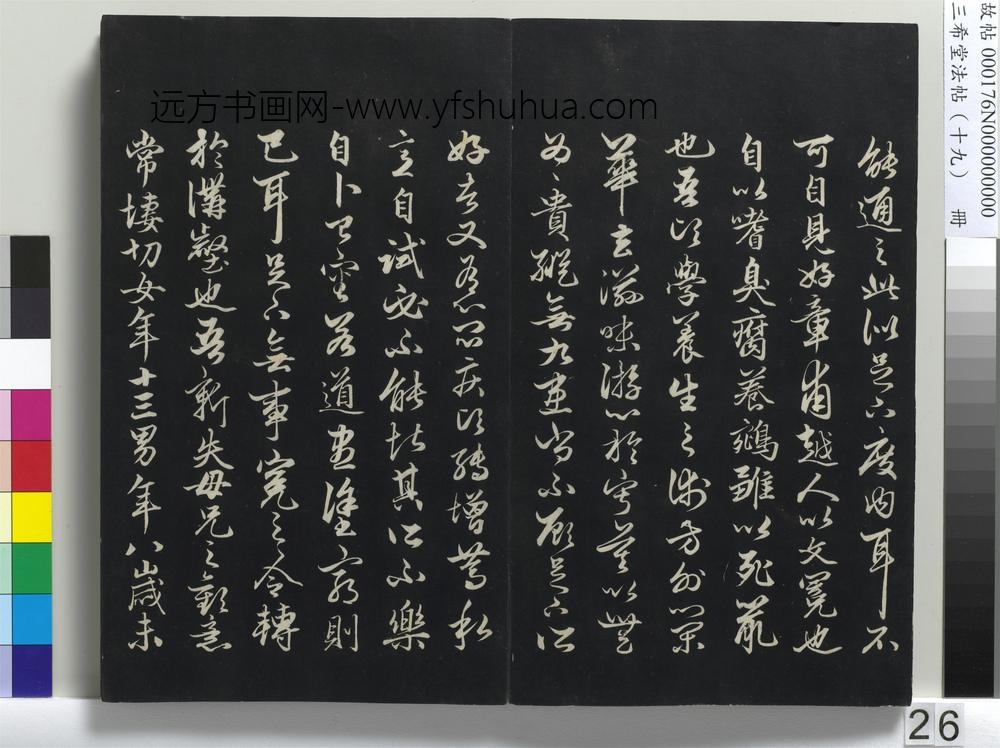 故帖 000176N000000000
三希堂法帖（十九） 冊
远方书画网-www.yfshuhua.com
能通之此似足下度內耳不
可自見好章甫越人以文冕也
自以嗜臭腐養鵷雛以死鼠
也吾頃學養生之術方外榮
華去滋味游心於寂寞以無
為〻貴縱無九患尚不顧足下所
好者又有心悶疾頃轉增篤私
意自試必不能堪其所不樂
自卜已審若道盡塗窮則
已耳足下無事冤之令轉
於溝壑也吾新失母兄之歡意
常悽切女年十三男年八歲未
26